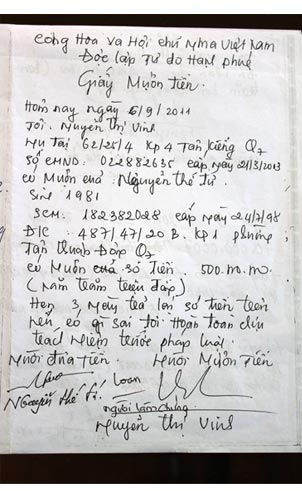 Cộng Hòa Và Hội chí Nghĩa Việt Nam
Độc lập Tự do Hạnh phúc
Giấy Mượn Tiền.
Hôm nay ngày 6/9/2011
Tôi. Nguyễn Thị Vins
Ngụ tại 62/25/4 Kp4 Tân Kiểng Q7
Số CMND: 022882635 cấp ngày 21/3/2013
có Mượn của: Nguyễn thế Tư.
Sinh 1981
SCM. 182382028 cấp ngày 24/7/98
Đ/C : 487/47/20 B. KP1 phường
Tân thuận Đông Q7
có Mượn của số Tiền. 500.m.m.
(Năm trăm triệu
Hẹn 3 trả lại số tiền trên
Nếu có gì sai tôi Hoàn toàn chịu
trách Nhiệm trước pháp luật.
Người đưa Tiền. Người Mượn Tiền
Loan
Nguyễn thế
người làm chứng
Nguyễn Thị Vins